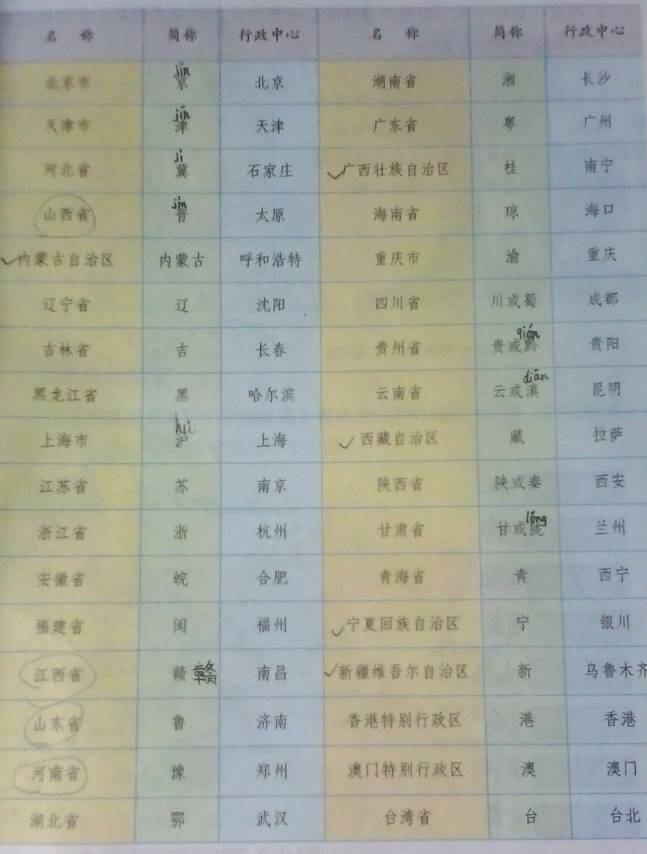 名 称 简称 行政中心 名 称 简称 行政中心
jīn jīn jì jìn hù qián diān lǒng
北京市 京 北京 湖南省 湘 长沙
天津市 津 天津 广东省 粤 广州
河北省 冀 石家庄 广西壮族自治区 桂 南宁
山西省 晋 太原 海南省 琼 海口
内蒙古自治区 内蒙古 呼和浩特 重庆市 渝 重庆
辽宁省 辽 沈阳 四川省 川或蜀 成都
吉林省 吉 长春 贵州省 贵或黔 贵阳
黑龙江省 黑 哈尔滨 云南省 云或滇 昆明
上海市 沪 上海 西藏自治区 藏 拉萨
江苏省 苏 南京 陕西省 陕或秦 西安
浙江省 浙 杭州 甘肃省 甘或陇 兰州
安徽省 皖 合肥 青海省 青 西宁
福建省 闽 福州 宁夏回族自治区 宁 银川
江西省 赣 赣 南昌 新疆维吾尔自治区 新 乌鲁木齐
山东省 鲁 济南 香港特别行政区 港 香港
河南省 豫 郑州 澳门特别行政区 澳 澳门
湖北省 鄂 武汉 台湾省 台 台北